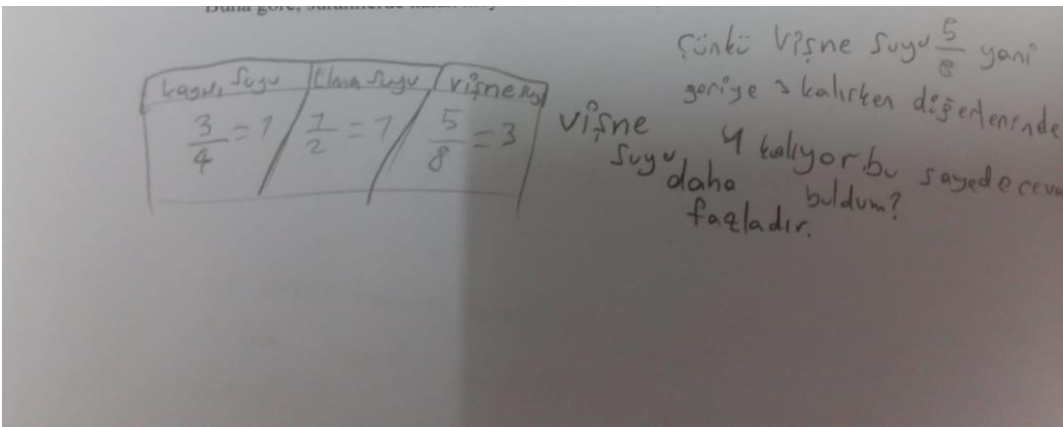 Daha göre,
Kayısı Suyu Elma Suyu Vişne Suyu
3/4 = 1 1/2 = 1 5/8 = 3
Vişne
Suyu
daha
fazladır.
Çünkü Vişne Suyu 5/8 yani
geriye 3 kalırken diğerlerinde
4 kalıyor bu sayede ceva
buldum?